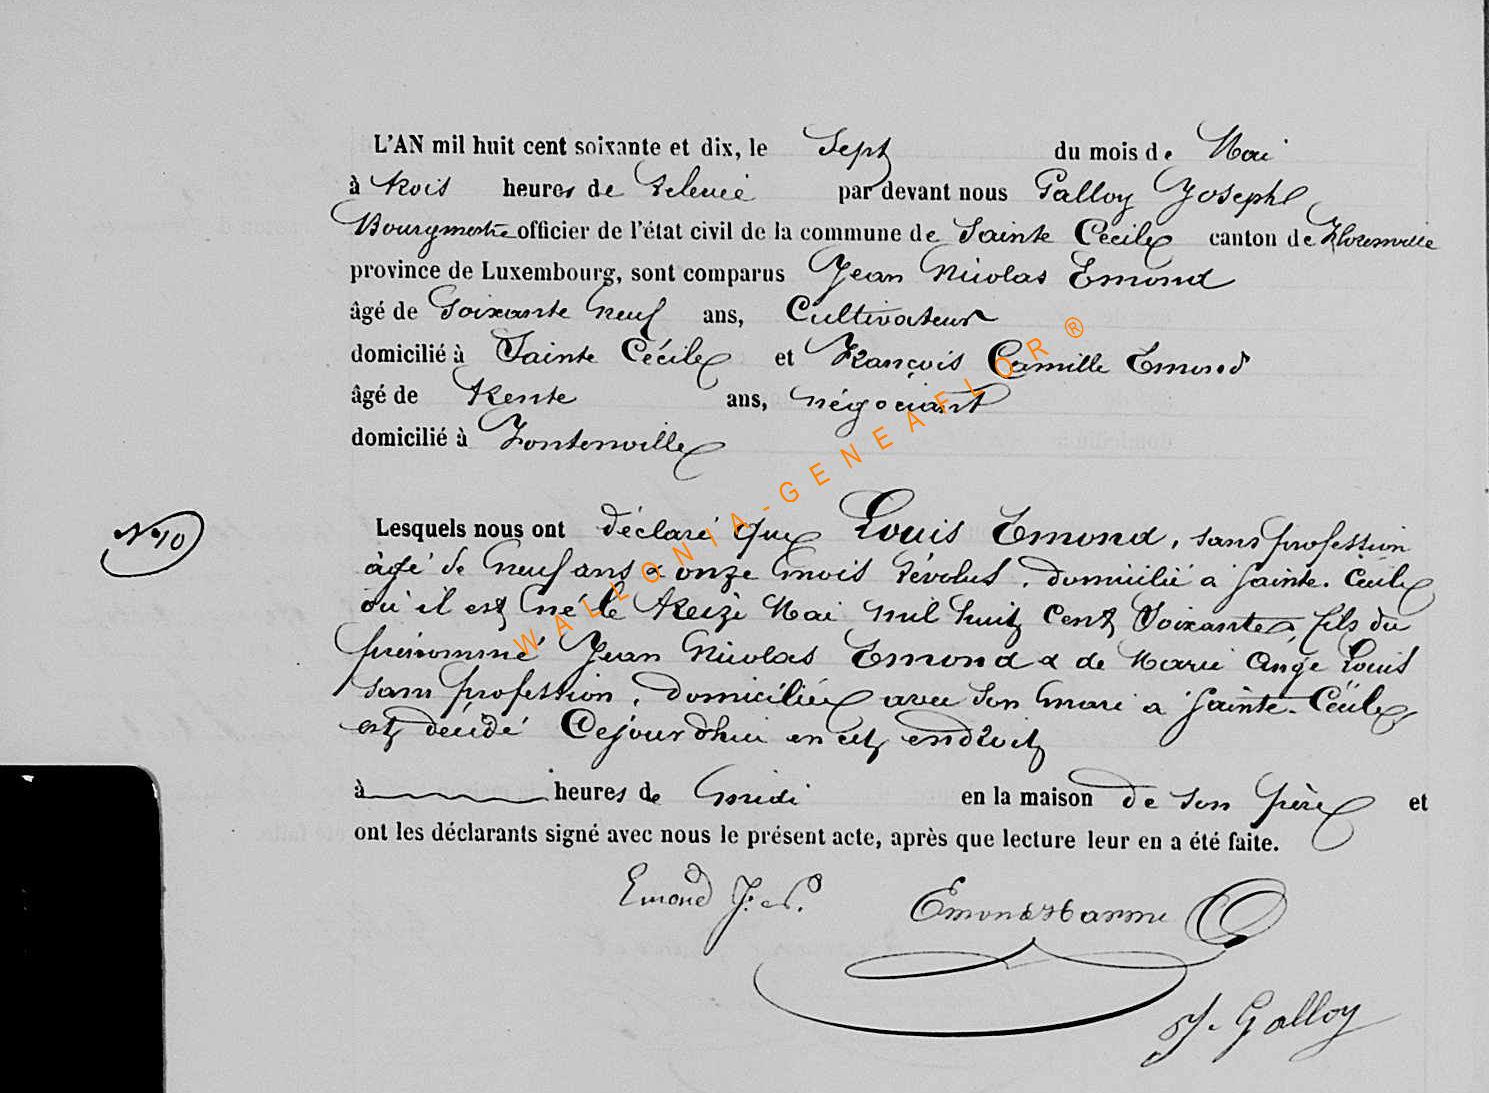 L'AN mil huit cent soixante et dix, le Sept du mois de Mai
à trois heures de relevée par devant nous Galloy Joseph
Bourgmestre officier de l'état civil de la commune de Sainte Cécile canton de Florenville
province de Luxembourg, sont comparus Jean Nicolas Emond
âgé de Soixante neuf ans, Cultivateur
domicilié à Sainte Cécile et François Camille Emond
âgé de trente ans, négociant
domicilié à Fontenoille
N 10
Lesquels nous ont déclaré que Louis Emond, sans profession
âgé de neuf ans & onze mois révolus, domicilié à Sainte-Cécile
où il est né le treize Mai mil huit cent Soixante, fils du
prénommé Jean Nicolas Emond & de Marie Ange Louis
sans profession, domiciliée avec son mari à Sainte-Cécile
est décédé Cejourdhui en cet endroit
à heures de midi en la maison de son père et
ont les déclarants signé avec nous le présent acte, après que lecture leur en a été faite.
Emond J. N. Emond Harmi
J. Galloy
WALLONIA-GENEAFLOR®